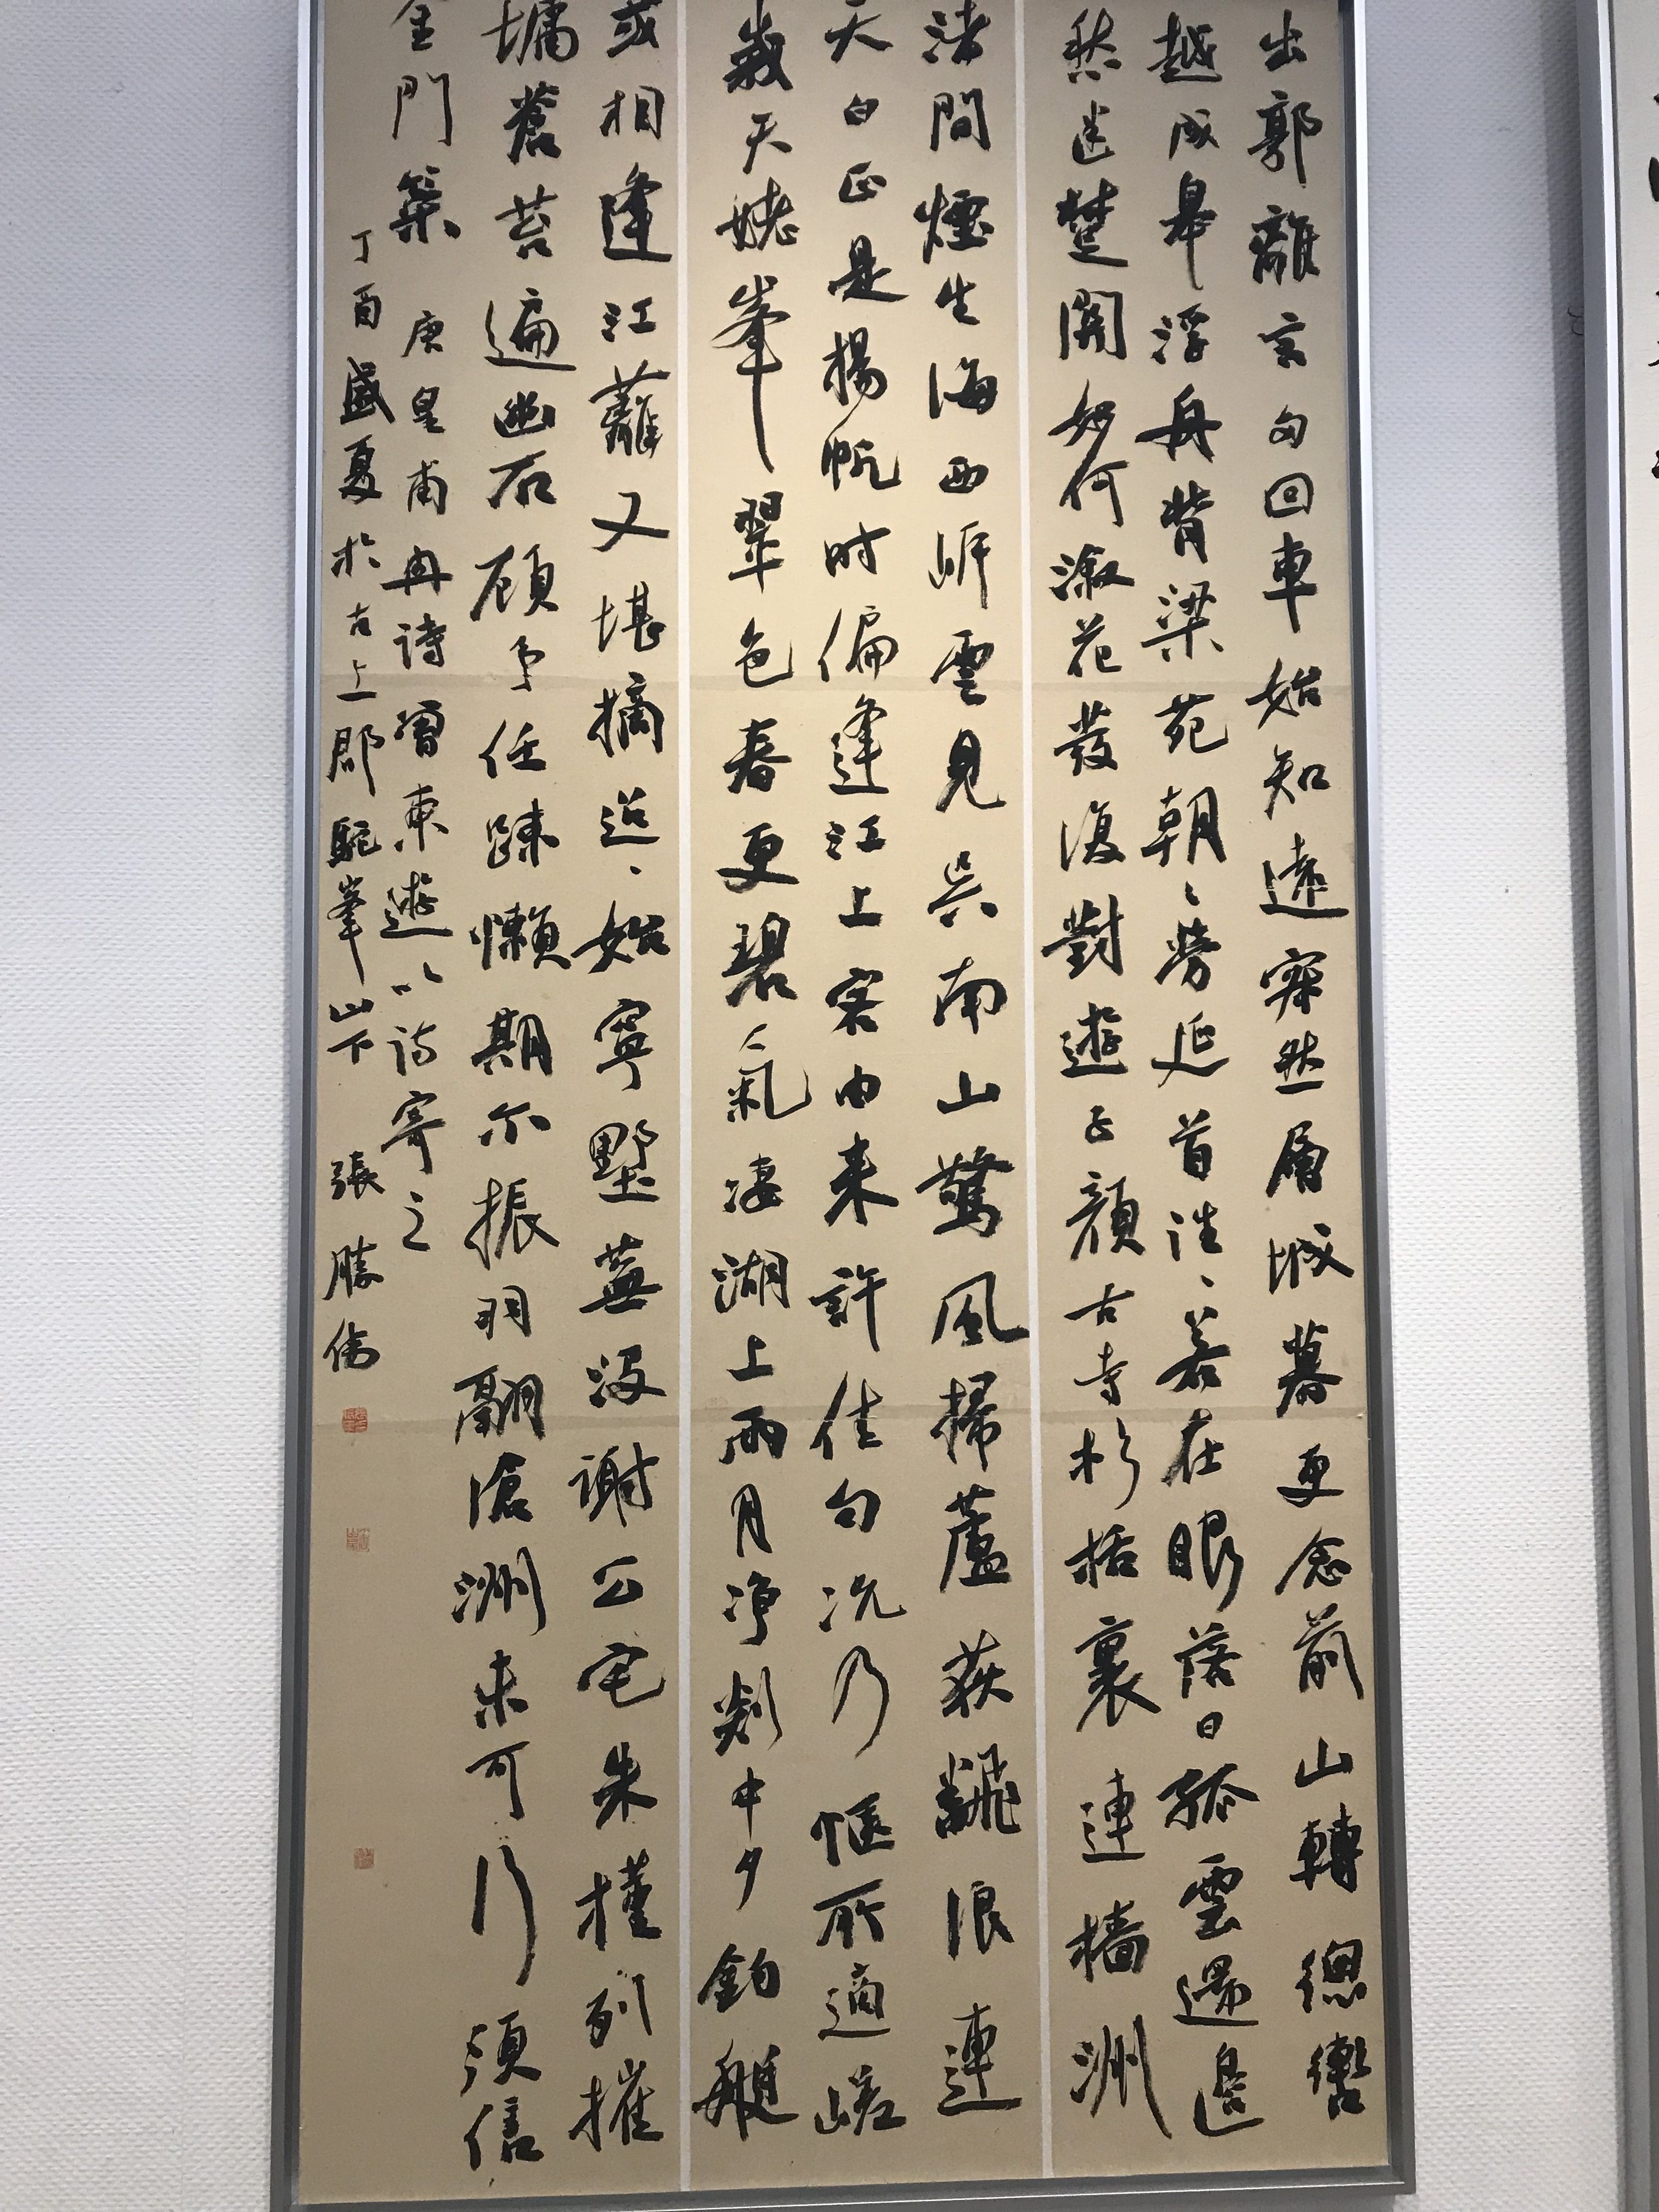 出郭離言句回車始知遠寂然層城暮更念前山轉總轡
越成皋浮舟背梁苑朝々勞延首往々若在眼落日孤雲還邊
愁迷楚關如何溆花發復對遊子顏古寺杉栝裏連檣洲
渚間煙生海西岸雲見吳南山驚風掃蘆荻飜浪連
天白正是揚帆時偏逢江上客由来許佳句況乃愜所適嵯
峩天姥峯翠色春更碧氣凄湖上雨月净剡中夕釣艇
或相逢江蘺又堪摘迢々始寧墅蕪沒謝公宅朱槿列摧
墉蒼苔遍幽石顧予任踈懶期尔振羽翮滄洲未可行須信
金門策 唐皇甫冉詩曾東遊以詩寄之
丁酉盛夏於古上郡駝峯山下 張勝偉